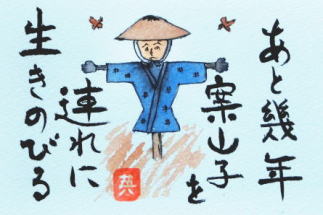 あと幾年
案山子を
連れに
生きのびる
英